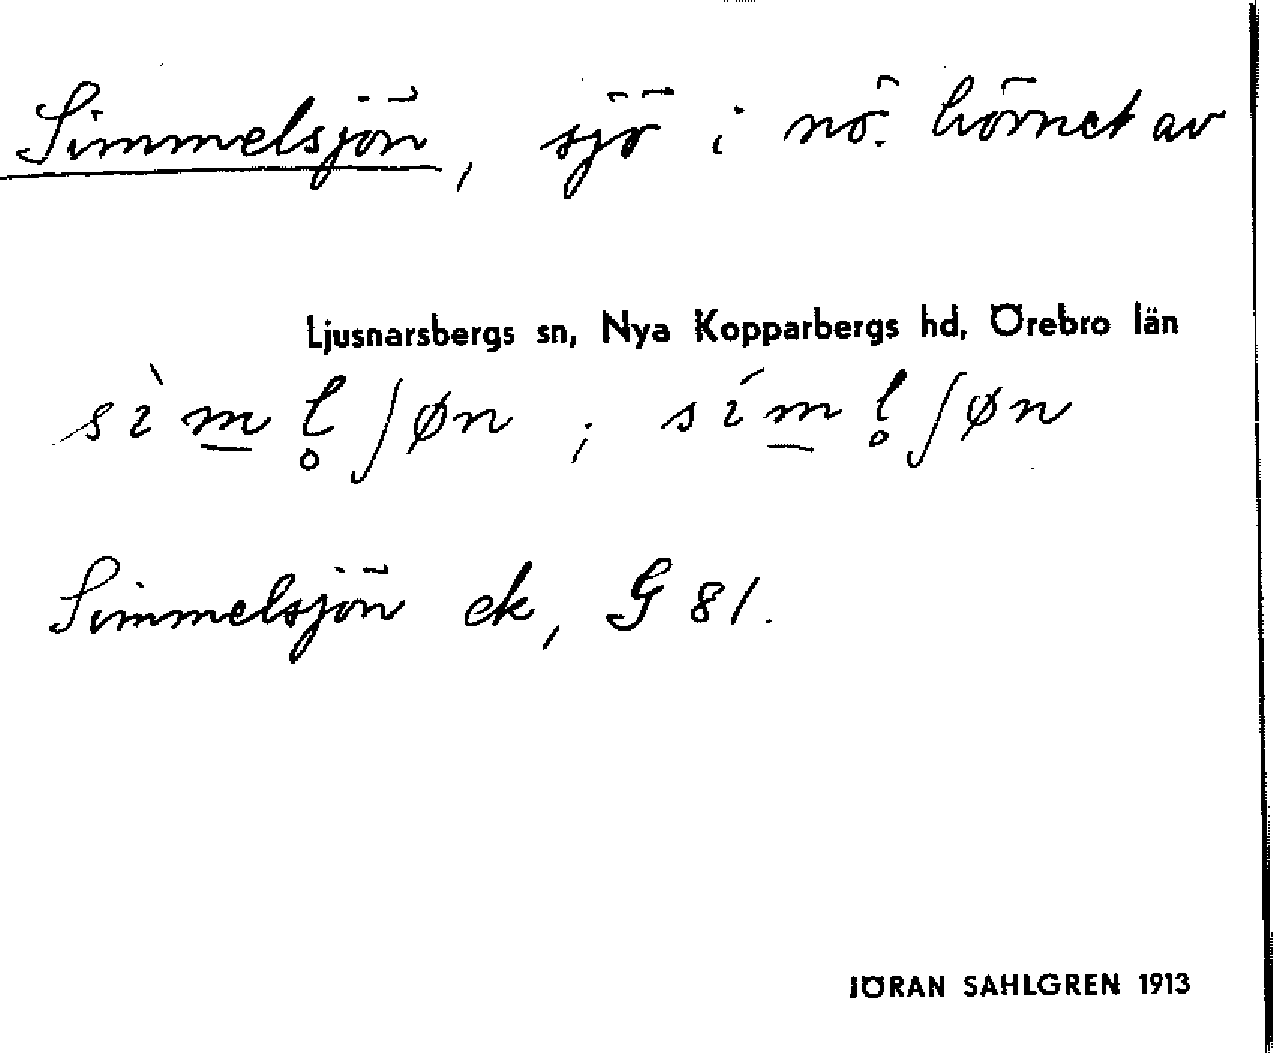 Simmelsjön, sjö i nö. hörnet av
Ljusnarsbergs sn, Nya Kopparbergs hd, Örebro län
sìm̲l̥ʃøn ; sím̲l̥ʃøn
Simmelsjön ek, G 81.
JÖRAN SAHLGREN 1913